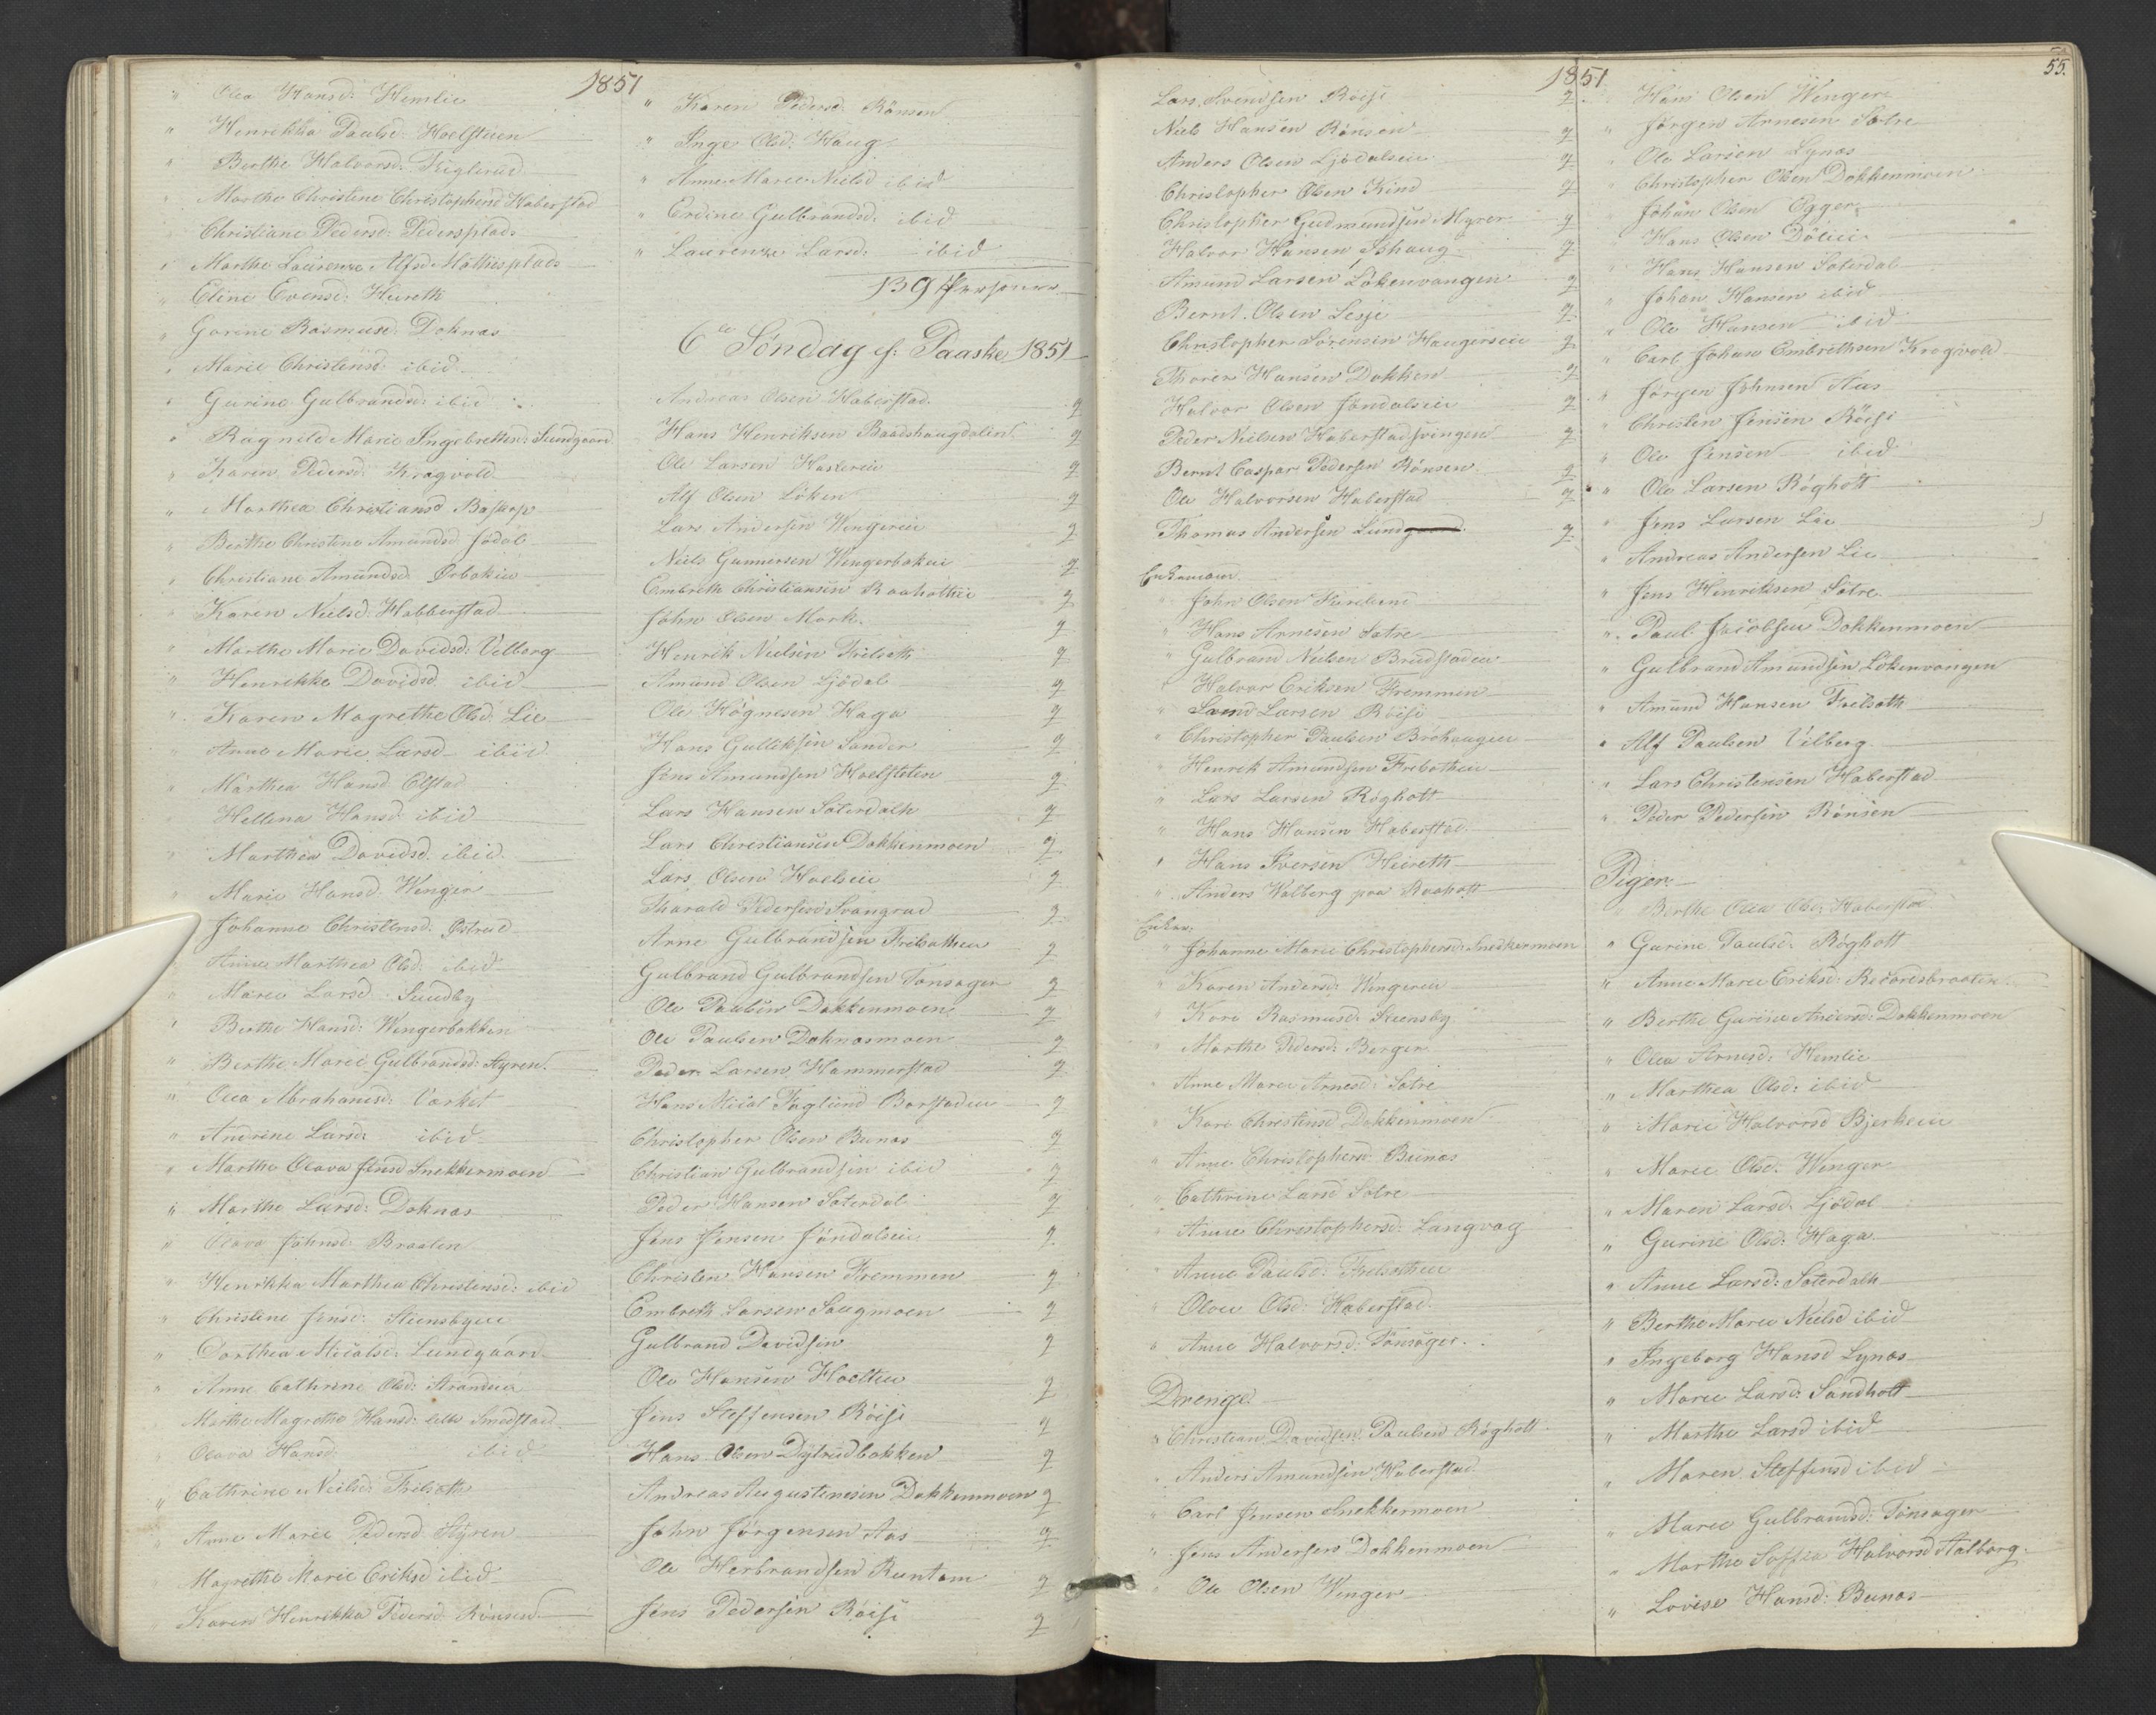 1851
" Olea Hansd: Hemlie
" Henrikka Paulsd: Hoelstuen
" Berthe Halvorsd. Tiglerud
" Marthe Christine Christophersd Haberstad
Christiane Pedersd: Pedersplads
" Marthe Laurenze Alfsd Mathiesplads
" Eline Evensd: Hureth
" Gorine Rasmusd: Doknæs
" Marie Christensd: ibid
" Gurine Gulbrandsd: ibid
" Ragnild Marie Ingebretsd: Sundgaard
" Karen Pedersd: Kragvold
" Marthea Christiansd Baskop
" Berthe Christine Amundsd. Jødal
" Christiane Amundsd. Ørbakin
" Karen Nielsd: Habberstad
" Marthe Marie Davidsd: Velberg
" Henrikke Davidsd. ibid
" Karen Magrethe Olsd. Lie
" Anne Marie Larsd ibid
" Marthea Hansd. Elstad
" Hellena Hansd: ibid
" Marthea Davidsd. ibid
" Marie Hansd. Winger
" Johanne Christensd: Østrud
" Anne Marthea Olsd: ibid
" Maria Larsd Sundby
" Berthe Hansd: Wingerbakken
" Berthe Marie Gulbrandsd: Styren.
" Olea Abrahamsd: Værket
" Andrine Larsd: ibid
" Marthe Olava Jensd Snekkermoen
" Marthe Larsd: Doknæs
" Olava Johnsd: Braaten
" Henrikka Marthea Christensd: ibid
" Christine Jensd: Steensbyeie
" Dorthea Micalsd: Lundgaard
" Anne Cathrine Olsd: Stranden
Marthe Magrethe Hansd: lille Smedstad
" Olava Hansd: ibid
" Cathrine Nielsd: Frilseth
" Anne Marie Pedersd Styren
" Magrethe Marie Eriksd ibid
" Karen Henrikka Pedersd: Rønsen
" Karen Pedersd: Rønsen
" Inger Olsd: Haug
" Anne Marie Nielsd ibid
" Erdine Gulbrandsd: ibid
" Laurenze Larsd: ibid
139 Personer
6te Søndag ef: Paaske 1851
Andreas Olsen Haberstad g
Hans Henriksen Baadshaugdalen g
Ole Larsen Hastereie g
Alf Olsen Løken g
Lars Andersen Wingereie g
Niels Gunnersen Wingerbakeie g
Embreth Christiansen Raaholteie g
John Olsen Mork g
Henrik Nielsen Frilseth g
Amund Olsen Ljødal g
Ole Høgnesen Haga g
Hans Gulliksen Sander g
Jens Amundsen Hoelsteten g
Lars Hansen Sæterdalk g
Lars Christiansen Dokkenmoen g
Lars Olsen Hoelseie g
Tharald Pedersen Svangrud g
Arne Gulbrandsen Frilsætheie g
Gulbrand Gulbrandsen Tønsager g
Ole Paulsen Dokkenmoen g
Ole Paulsen Doknæsmoen g
Peder Larsen Hammerstad g
Hans Mical Faglund Borstadeie g
Christopher Olsen Bunæs g
Christian Gulbrandsen ibid g
Peder Hansen Sæterdal g
Jens Jensen Jøndalseie g
Christen Hansen Fremmen g
Embreth Larsen Saugmoen g
Gulbrand Davidsen g
Ole Hansen Hoelteie g
Jens Steffensen Røise g
Hans Olsen Dytrudbakken g
Andreas Augustinusen Dokkenmoen g
John Jørgensen Aas g
Ole Herbrandsen Runtom g
Jens Pedersen Røise g
1851
55.
Lars Svendsen Røise g
Niels Hansen Rønsen g
Anders Olsen Ljødalseie g
Christopher Olsen Kind g
Christopher Gudmundsen Myrer g
Halvor Hansen Ishaug g
Amund Larsen Løkenvangen g
Bernt Olsen Lesje g
Christopher Sørensen Haugerseie g
Thorer Hansen Dokken g
Halvor Olsen Jøndalseie g
Peder Nielsen Haberstadsvingen g
Bernt Caspar Pedersen Rønsen g
Ole Halvorsen Haberstad g
Thomas Andersen Lundgaard g
Enkemænd
" John Olsen
" Hans Arnesen Sætre
" Gulbrand Nielsen Brudstadeie
" Halvor Eriksen Fremmen
" Larsen Røise
" Christopher Paulsen Brøhaugen
" Henrik Amundsen Frebotheie
" Lars Larsen Røgholt
" Hans Hansen Haberstad
" Hans Iversen Heireth
" Anders Walberg paa Raaholt
Enker.
" Johanne Marie Christophersd: Snekkermoen
" Karen Andersd: Wingereie
" Kari Rasmusd: Steensby
" Marthe Pedersd: Berger
" Anne Marie Arnesd: Sætre
" Kari Christensd Dokkenmoen
" Anne Christophersd Bunæs
" Cathrine Larsd Sætre
" Anne Christophersd: Langvag
" Anne Paulsd: Frilsetheie
" Olea Olsd: Haberstad
" Anne Halvorsd: Tønsager
Drenge.
" Christian Davidsen Paulsen Røgholt
" Anders Amundsen Haberstad
" Carl Jensen Snekkermoen
" Jens Andersen Dokkenmoen
" Ole Olsen Winger
Hans Olsen Winger
" Jørgen Arnesen Sætre
" Ole Larsen Lynæs
" Christopher Olsen Dokkenmoen
Johan Olsen Egger
" Hans Olsen Døleie
" Hans Hansen Sæterdal
" Johan Hansen ibid
" Ole Hansen ibid
" Carl Johan Embrethsen Kragvold
" Jørgen Johnsen Aas
" Christen Jensen Røise
" Ole Jensen ibid
" Ole Larsen Røgholt
" Jens Larsen Lie
" Andreas Andersen Lie
" Jens Henriksen Sætre
" Paul Jacobsen Dokkenmoen
" Gulbrand Amundsen Løkenvangen
" Amund Hansen Frilseth
" Alf Paulsen Vilberg
" Lars Christensen Haberstad
" Peder Pedersen Rønsen
Piger.
" Berthe Olea Olsd: Haberstad
" Gurine Paulsd: Røgholt
" Anne Marie Eriksd:
" Berthe Gurine Andersd: Dokkenmoen
" Olea Arnesd: Hemlie
" Marthea Olsd: ibid
" Marie Halvorsd Bjerkeie
" Marie Olsd: Winger
" Maren Larsd: Ljødal
" Gurine Olsd: Haga
" Anne Larsd: Sæterdalk
" Berthe Marie Nielsd ibid
" Ingeborg Hansd Lynæs
" Marie Larsd: Sandholt
" Marthe Larsd ibid
" Maren Steffensd ibid
" Marie Gulbrandsd: Tønsager
" Marthe Soffea Halvorsd Aalborg
" Lovise Hansd: Bunæs